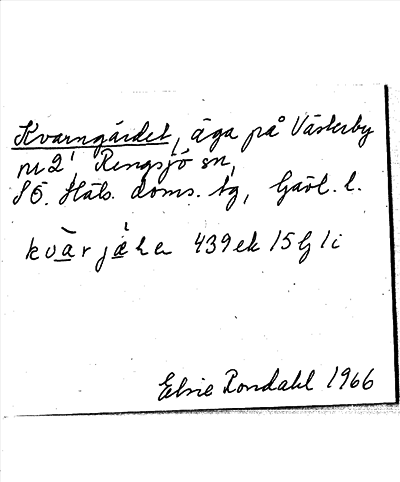 Kvarngärdet, äga på Västerby
nr 2, Rengsjö sn,
SÖ. Häls. doms. tg, Gävl. l.
kvàrjá̀ḷe 439 ek 15 G 1 i
Elsie Rondahl 1966